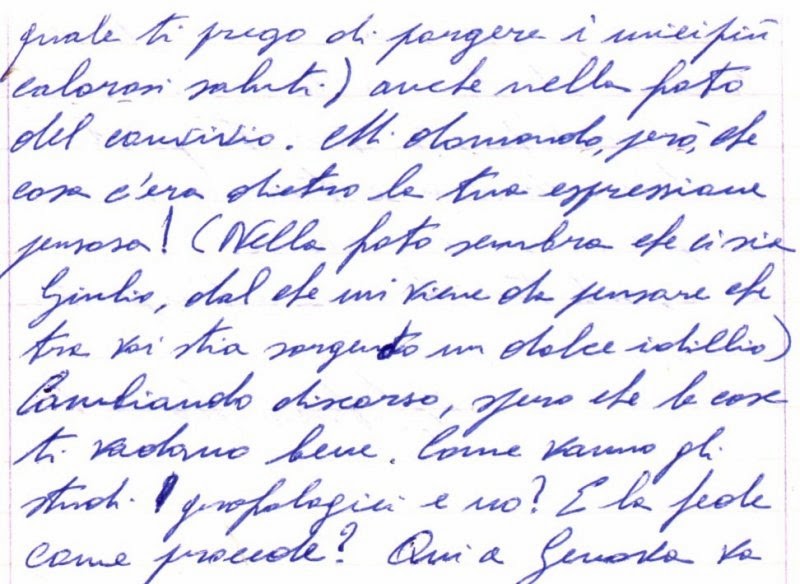 quale ti prego di porgere i miei più
calorosi saluti) anche nella foto
del convivio. Mi domando, però, che
cosa c'era dietro la tua espressione
pensosa! (Nella foto sembra che ci sia
Giulio, dal che mi viene da pensare che
tra voi stia sorgendo un dolce idillio)
Cambiando discorso, spero che le cose
ti vadano bene. Come vanno gli
studi grafologici e no? E la fede
come procede? Qui a Genova va